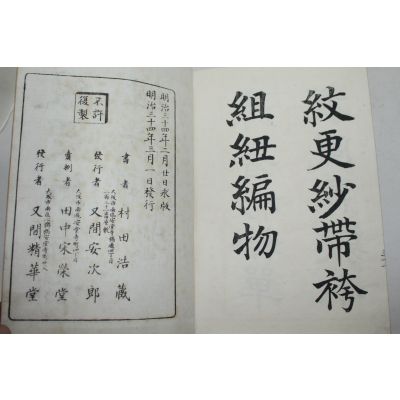 紋更紗帯袴
組紐編物
不許
復製
明治三十四年二月廿日求版
明治三十四年三月一日發行
書者 村田浩藏
發行者 又間安次郎
賣捌者 田中宋榮堂
發行者 又間精華堂